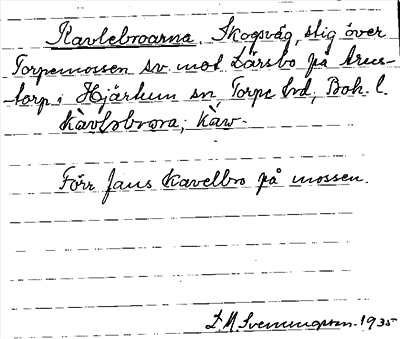 Kavlebroarna, Skogsväg, stig över
Torpemossen sv. mot Lärsbo på
torp i Hjärtum sn Torpe hd, Boh. l.
Kàvləbrora, Kàv-
Förr fans Kavelbro på mossen.
S. M. Svenningson. 1935